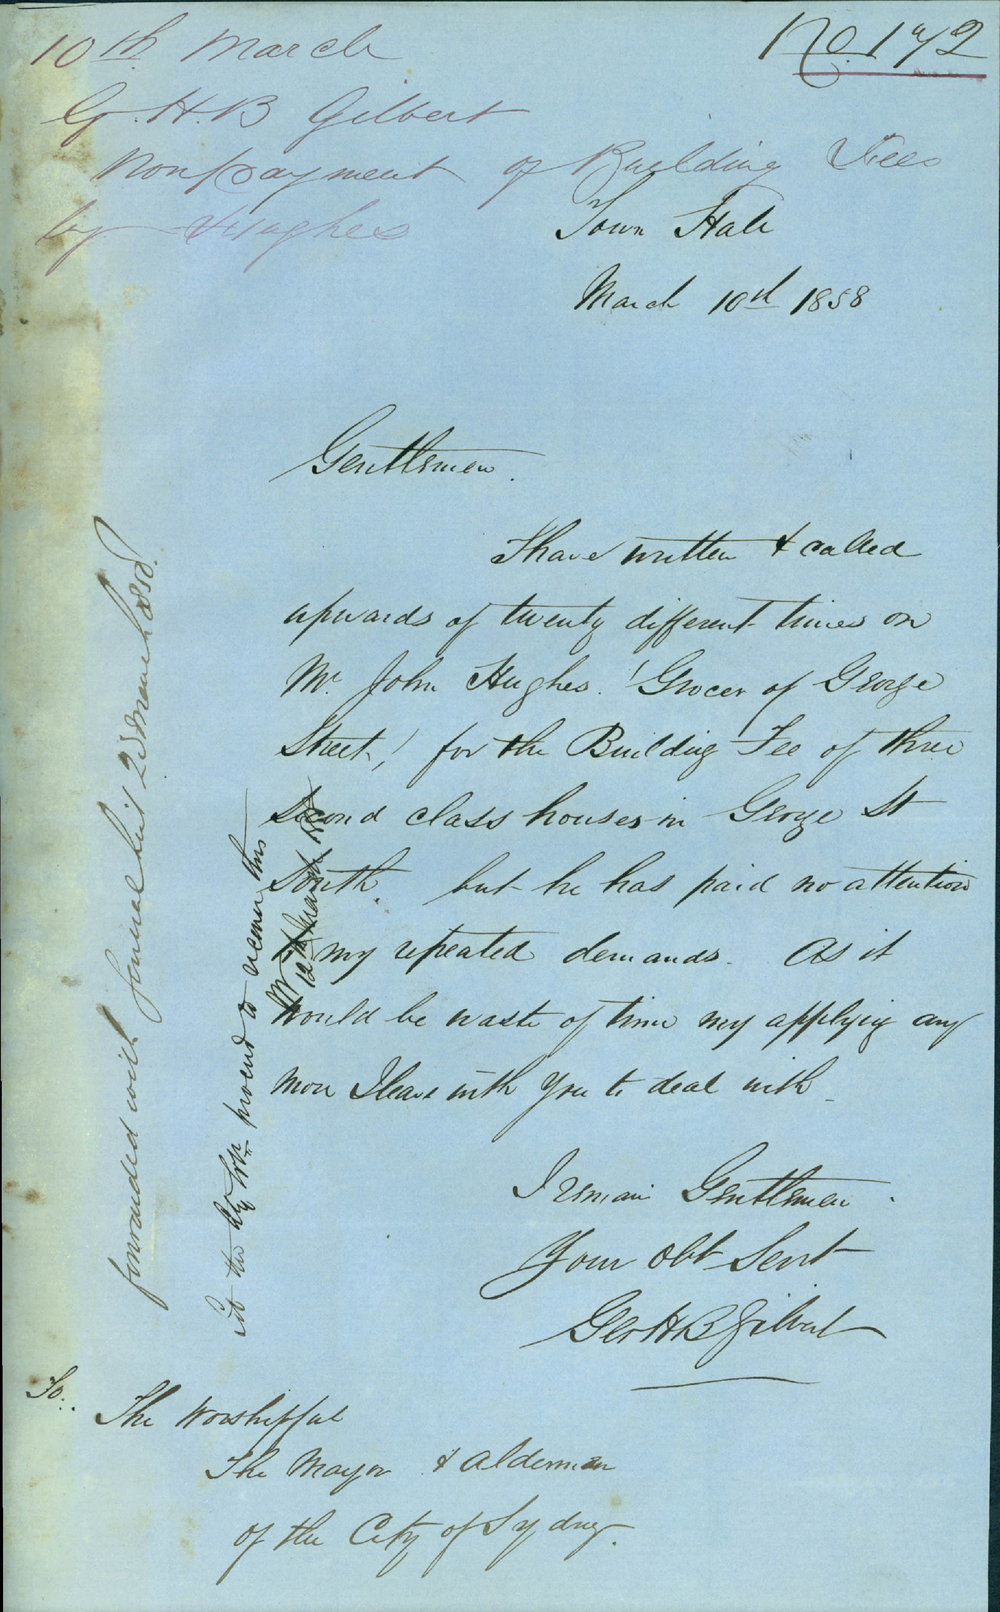 No. 172
10th March
G. H. B Gilbert
Nonpayment of Building Fees
by Hughes
Town Hall
March 10th 1858
Gentlemen.
I have written & called
upwards of twenty different times on
Mr John Hughes. (Grocer of George
Street,) for the Building Fee of three
second class houses in George St
South. but he has paid no attention
to my repeated demands. As it
would be waste of time my applying any
more I leave with You to deal with
I remain Gentlemen.
Your Obt Servt
Geo H B Gilbert
To.
The Worshipful
The Mayor & Aldermen
of the City of Sydney.
Let the City Solr proceed to recover this
12th March
forwarded with general list 25 March 1858.